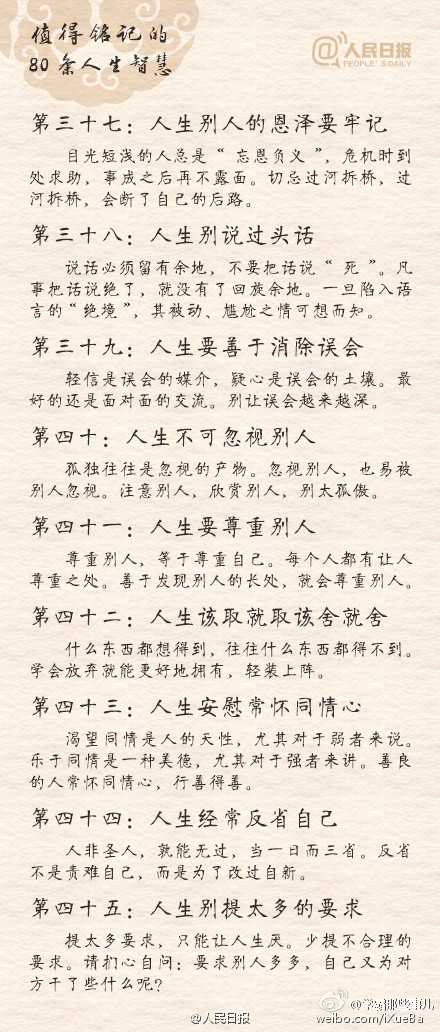 值得铭记的
80条人生智慧
@人民日报
PEOPLE'S DAILY
第三十七：人生别人的恩泽要牢记
目光短浅的人总是“忘恩负义”，危机时到
处求助，事成之后再不露面。切忌过河拆桥，过
河拆桥，会断了自己的后路。
第三十八：人生别说过头话
说话必须留有余地，不要把话说“死”。凡
事把话说绝了，就没有了回旋余地。一旦陷入语
言的“绝境”，其被动、尴尬之情可想而知。
第三十九：人生要善于消除误会
轻信是误会的媒介，疑心是误会的土壤。最
好的还是面对面的交流。别让误会越来越深。
第四十：人生不可忽视别人
孤独往往是忽视的产物。忽视别人，也易被
别人忽视。注意别人，欣赏别人，别太孤傲。
第四十一：人生要尊重别人
尊重别人，等于尊重自己。每个人都有让人
尊重之处。善于发现别人的长处，就会尊重别人。
第四十二：人生该取就取该舍就舍
什么东西都想得到，往往什么东西都得不到。
学会放弃就能更好地拥有，轻装上阵。
第四十三：人生安慰常怀同情心
渴望同情是人的天性，尤其对于弱者来说。
乐于同情是一种美德，尤其对于强者来讲。善良
的人常怀同情心，行善得善。
第四十四：人生经常反省自己
人非圣人，孰能无过，当一日而三省。反省
不是责难自己，而是为了改过自新。
第四十五：人生别提太多的要求
提太多要求，只能让人生厌。少提不合理的
要求。请扪心自问：要求别人多多，自己又为对
方干了些什么呢？
@人民日报
weibo.com/iXueBa